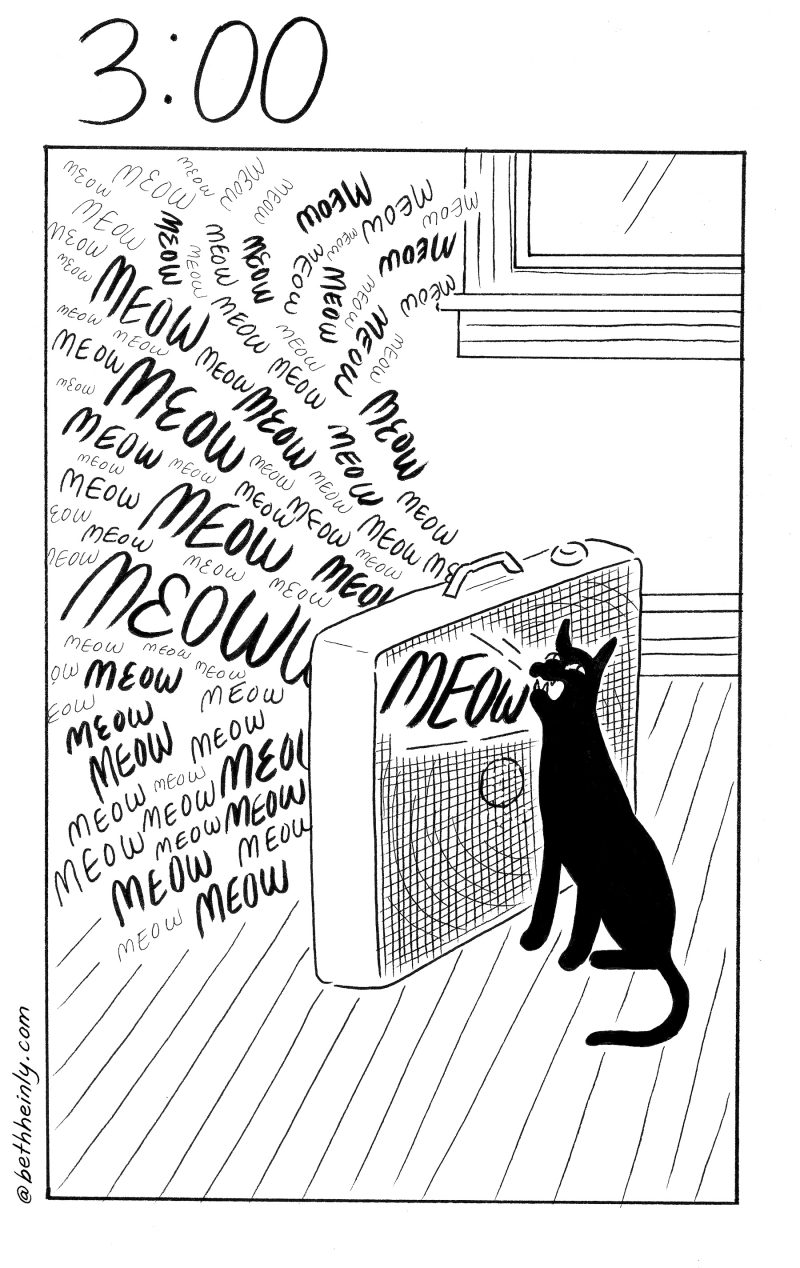 3:00
MEOW MEOW MEOW MEOW MEOW MEOW MEOW MEOW
MEOW MEOW MEOW MEOW MEOW MEOW MEOW MEOW
MEOW MEOW MEOW MEOW MEOW
MEOW MEOW MEOW MEOW
MEOW MEOW MEOW
MEOW MEOW MEOW
MEOW MEOW MEOW MEOW
MEOW MEOW
MEOW MEOW MEOW MEOW MEOW
MEOW MEOW MEOW MEOW MEOW
EOW MEOW MEOW ME
MEOW MEOW MEOW MEO
MEOWW
MEOW MEOW MEOW
OW MEOW MEOW
EOW MEOW
MEOW MEOW MEO
MEOW MEOW
MEOW MEOW
MEOW MEOW MEOW
MEOW MEOW
MEOW
MEOW
@bethheinly.com